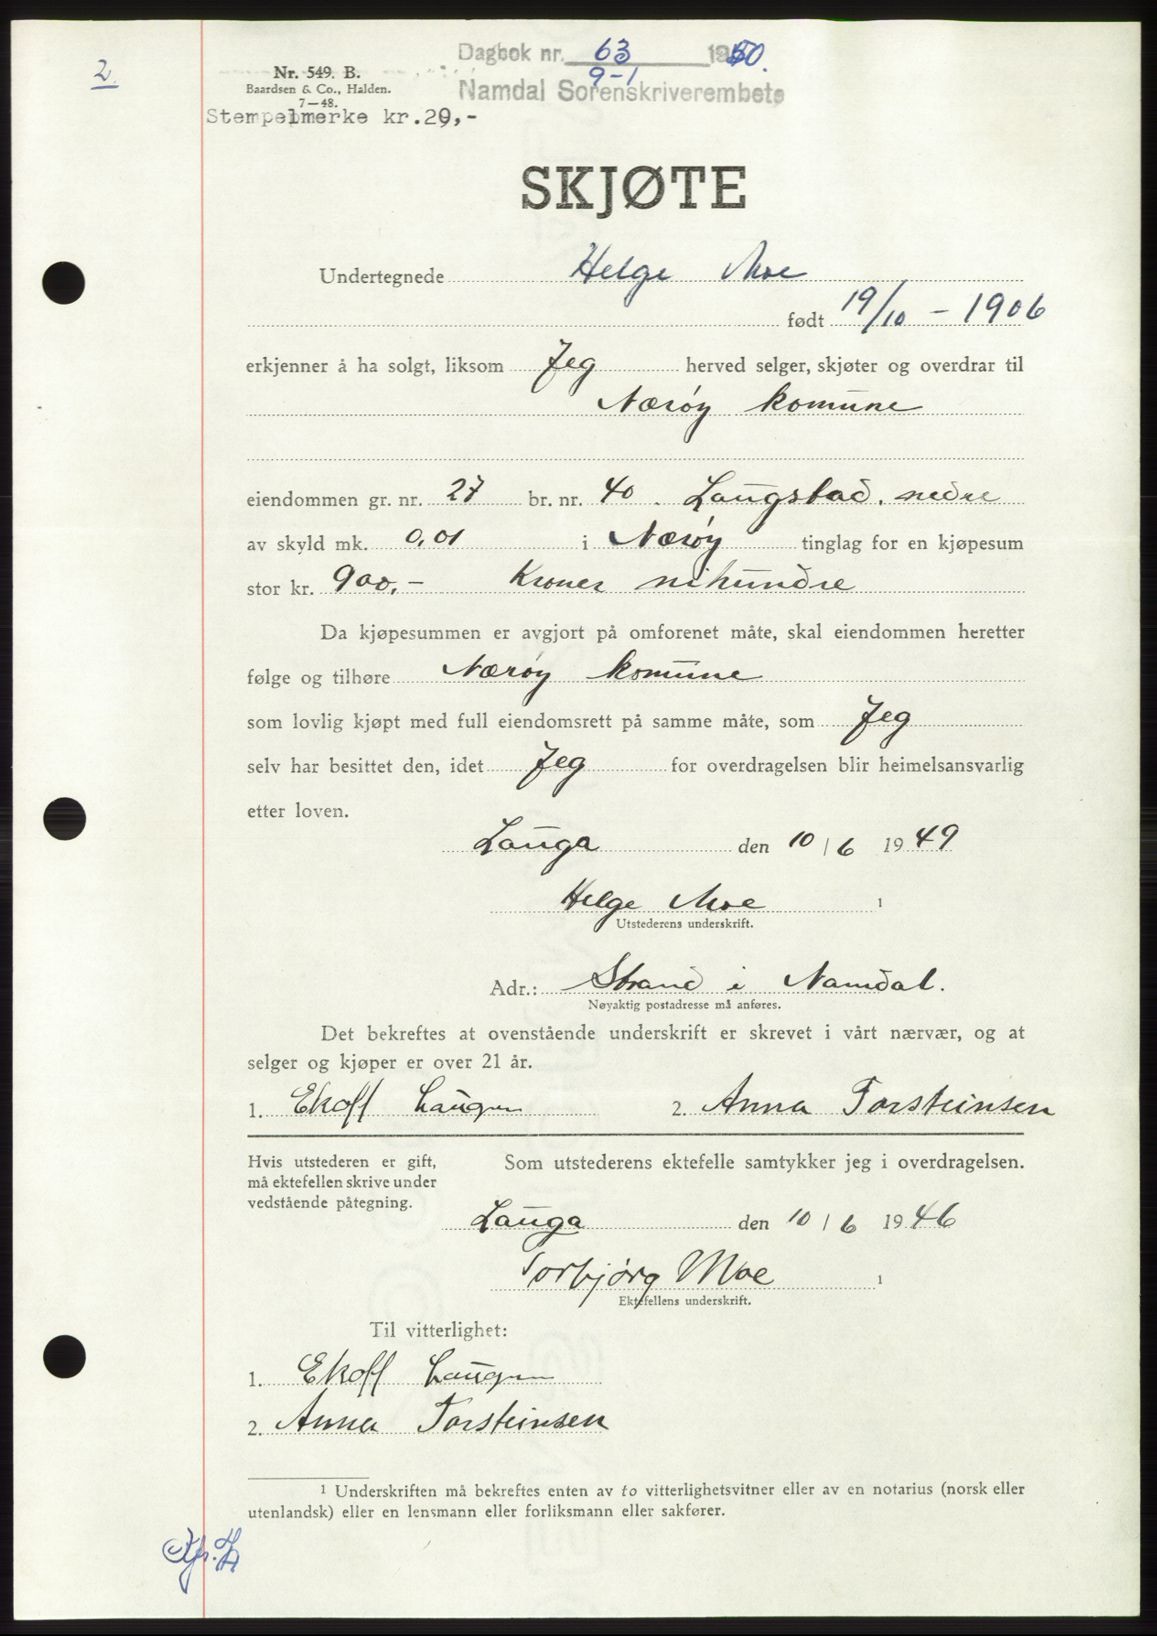 2.
Nr. 549. B.
Baardsen & Co., Halden.
7—48.
Stempelmerke kr.29,-
Dagbok nr. 63 1950.
9-1
Namdal Sorenskriverembete
SKJØTE
Undertegnede Helge Moe
født 19/10 - 1906
erkjenner å ha solgt, liksom Jeg herved selger, skjøter og overdrar til
Nærøy komune
eiendommen gr. nr. 27 br. nr. 40. Laugstad, nedre
av skyld mk. 0,01 i Nærøy tinglag for en kjøpesum
stor kr. 900,- Kroner nihundre
Da kjøpesummen er avgjort på omforenet måte, skal eiendommen heretter
følge og tilhøre Nærøy komune
som lovlig kjøpt med full eiendomsrett på samme måte, som Jeg
selv har besittet den, idet Jeg for overdragelsen blir heimelsansvarlig
etter loven.
Lauga den 10/6 1949
Helge Moe 1
Utstederens underskrift.
Adr.: Strand i Namdal.
Nøyaktig postadresse må anføres.
Det bekreftes at ovenstående underskrift er skrevet i vårt nærvær, og at
selger og kjøper er over 21 år.
1. Ekoff Laugen 2. Anna Torsteinsen
Hvis utstederen er gift,
må ektefellen skrive under
vedstående påtegning.
Som utstederens ektefelle samtykker jeg i overdragelsen.
Lauga den 10/6 1946
Torbjørg Moe 1
Ektefellens underskrift.
Til vitterlighet:
1. Ekoff Laugen
2. Anna Torsteinsen
1 Underskriften må bekreftes enten av to vitterlighetsvitner eller av en notarius (norsk eller
utenlandsk) eller en lensmann eller forliksmann eller sakfører.